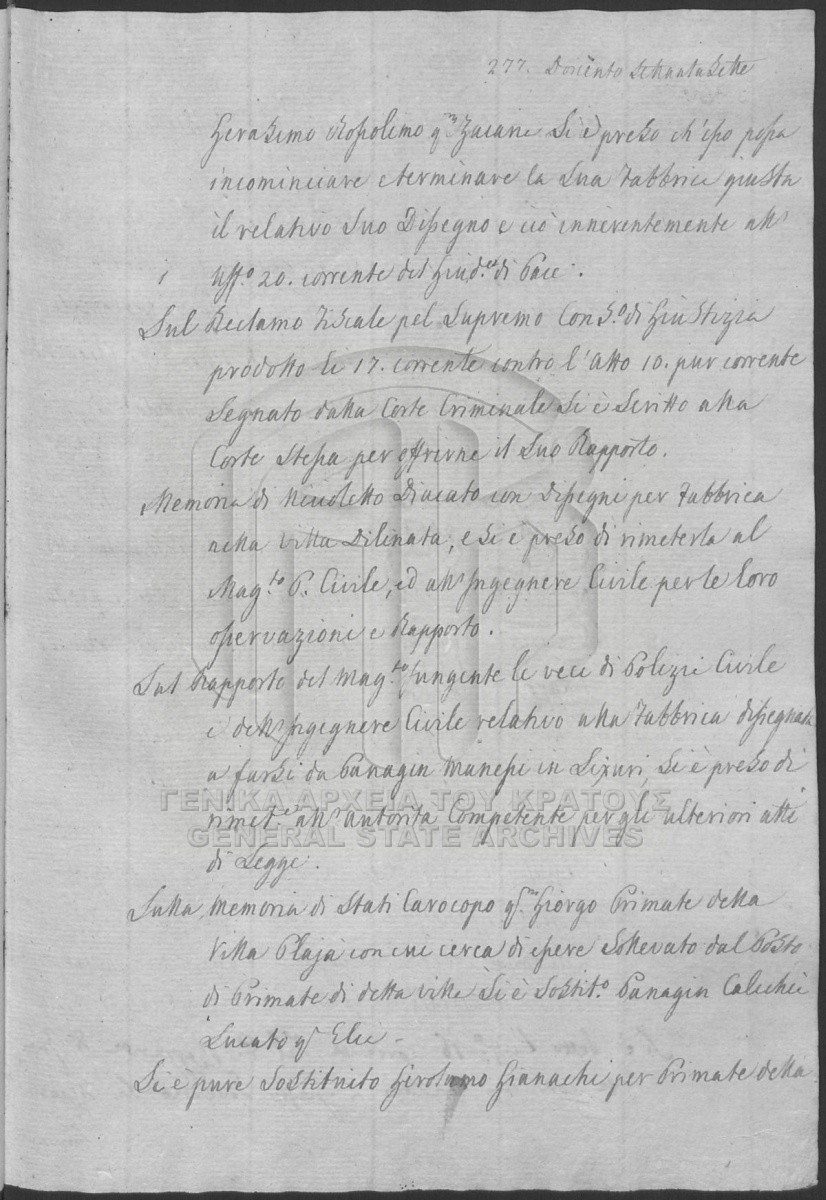 277. Doicento settantasette
Gerasimo Rosolimo q.m Zuane Si è preso ch'esso possa
incominciare e terminare la Sua Fabbrica giusta
il relativo Suo Dissegno e ciò innerentemente all'
Uff.o 20. corrente del Giud.e di Pace.
Sul Reclamo Fiscale pel Supremo Cons.o di Giustizia
prodotto li 17. corrente contro l'Atto 10. pur corrente
Segnato dalla Corte Criminale Si è Scritto alla
Corte Stessa per offrirne il Suo Rapporto.
Memoria di Nicoletto Diucato con Dissegni per Fabbrica
nella Villa Dilinata, e si è preso di rimeterla al
Mag.to P. Civile, ed all'Ingegnere Civile per le loro
osservazioni e Rapporto.
Sul Rapporto del Mag.to fungente le veci di Polizia Civile
e dell'Ingegnere Civile relativo alla Fabbrica dissegnata
a farsi da Panagin Manessi in Lixuri, Si è preso di
rimet.e all'autorita Competente per gli ulteriori atti
di Legge.
Sulla Memoria di Stati Carocopo q.m Giorgo Primate della
Villa Plaja con cui cerca di essere Sollevato dal Posto
di Primate di detta Villa Si è Sostit.o Panagin
Lucato q.m Elia -
Si è pure Sostituito Girolamo Gianachi per Primate della
ΓΕΝΙΚΑ ΑΡΧΕΙΑ ΤΟΥ ΚΡΑΤΟΥΣ
GENERAL STATE ARCHIVES